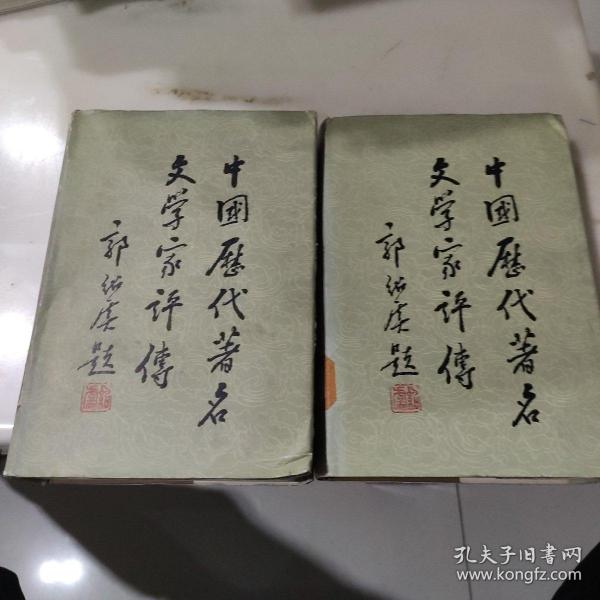 中國歷代著名
文学家评傳
郭绍虞题
中國歷代著名
文学家评傳
郭绍虞题
孔夫子旧书网
www.kongfz.com